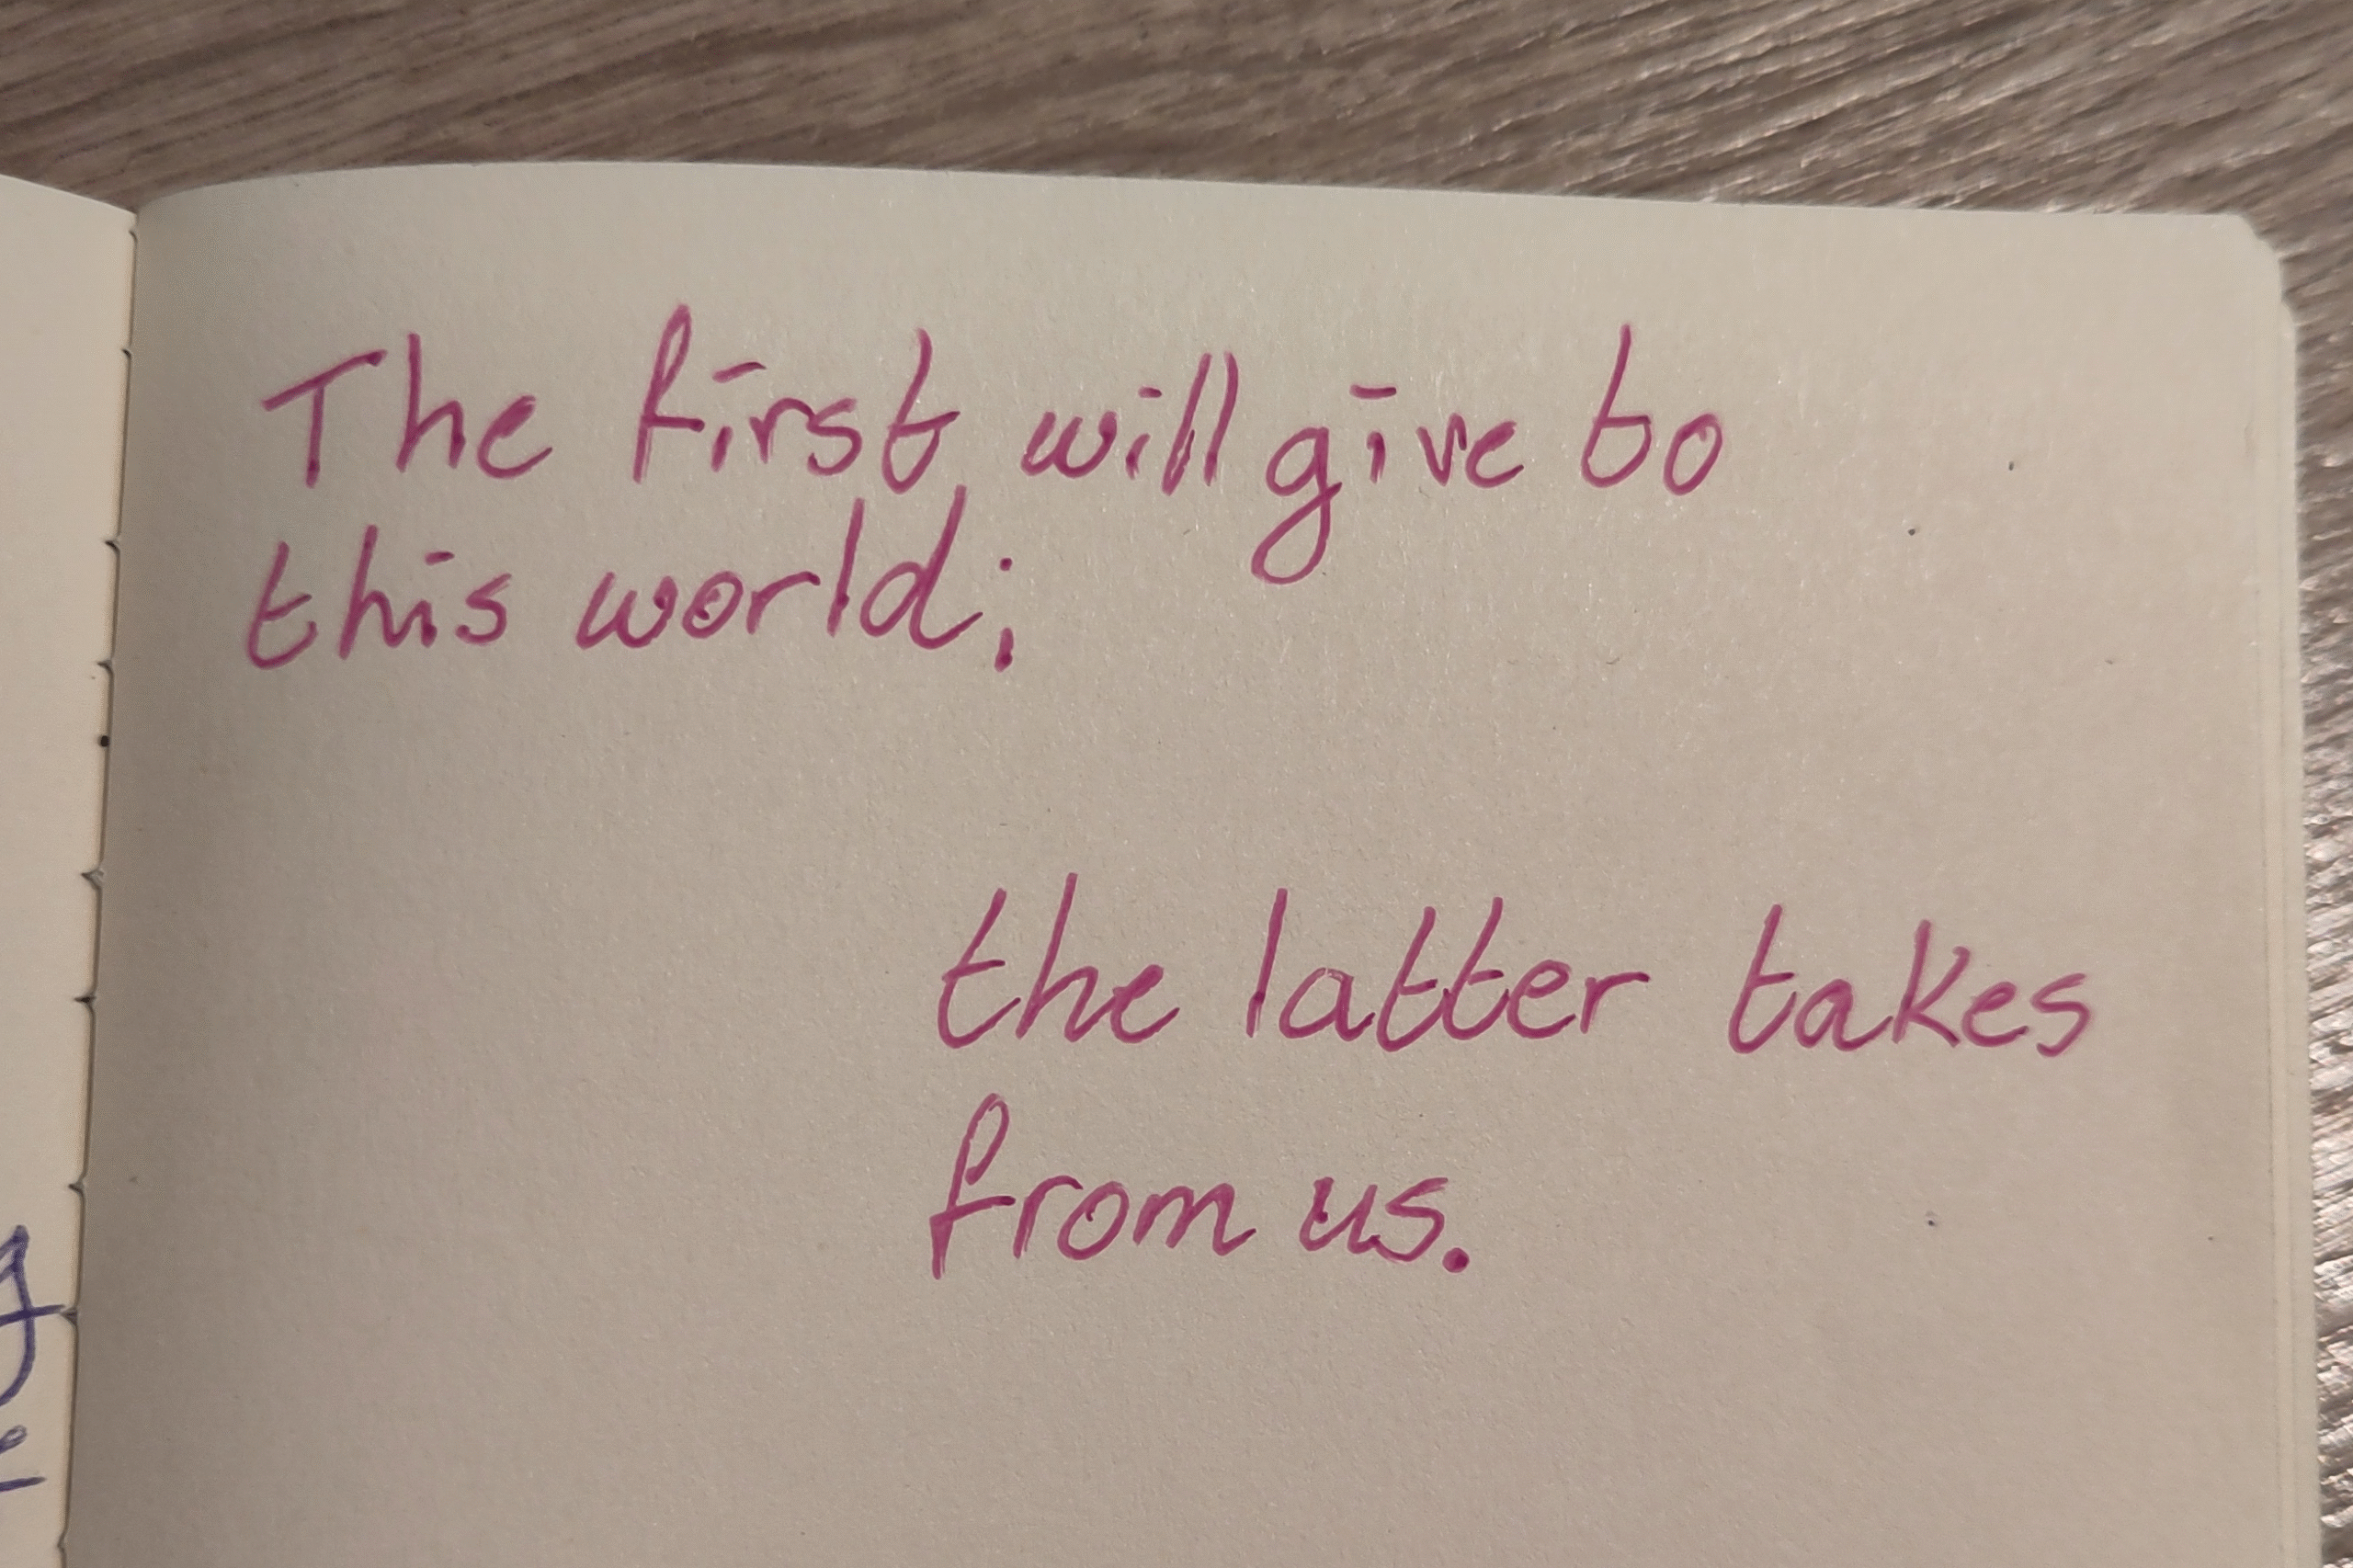 The first will give to
this world;
the latter takes
from us.